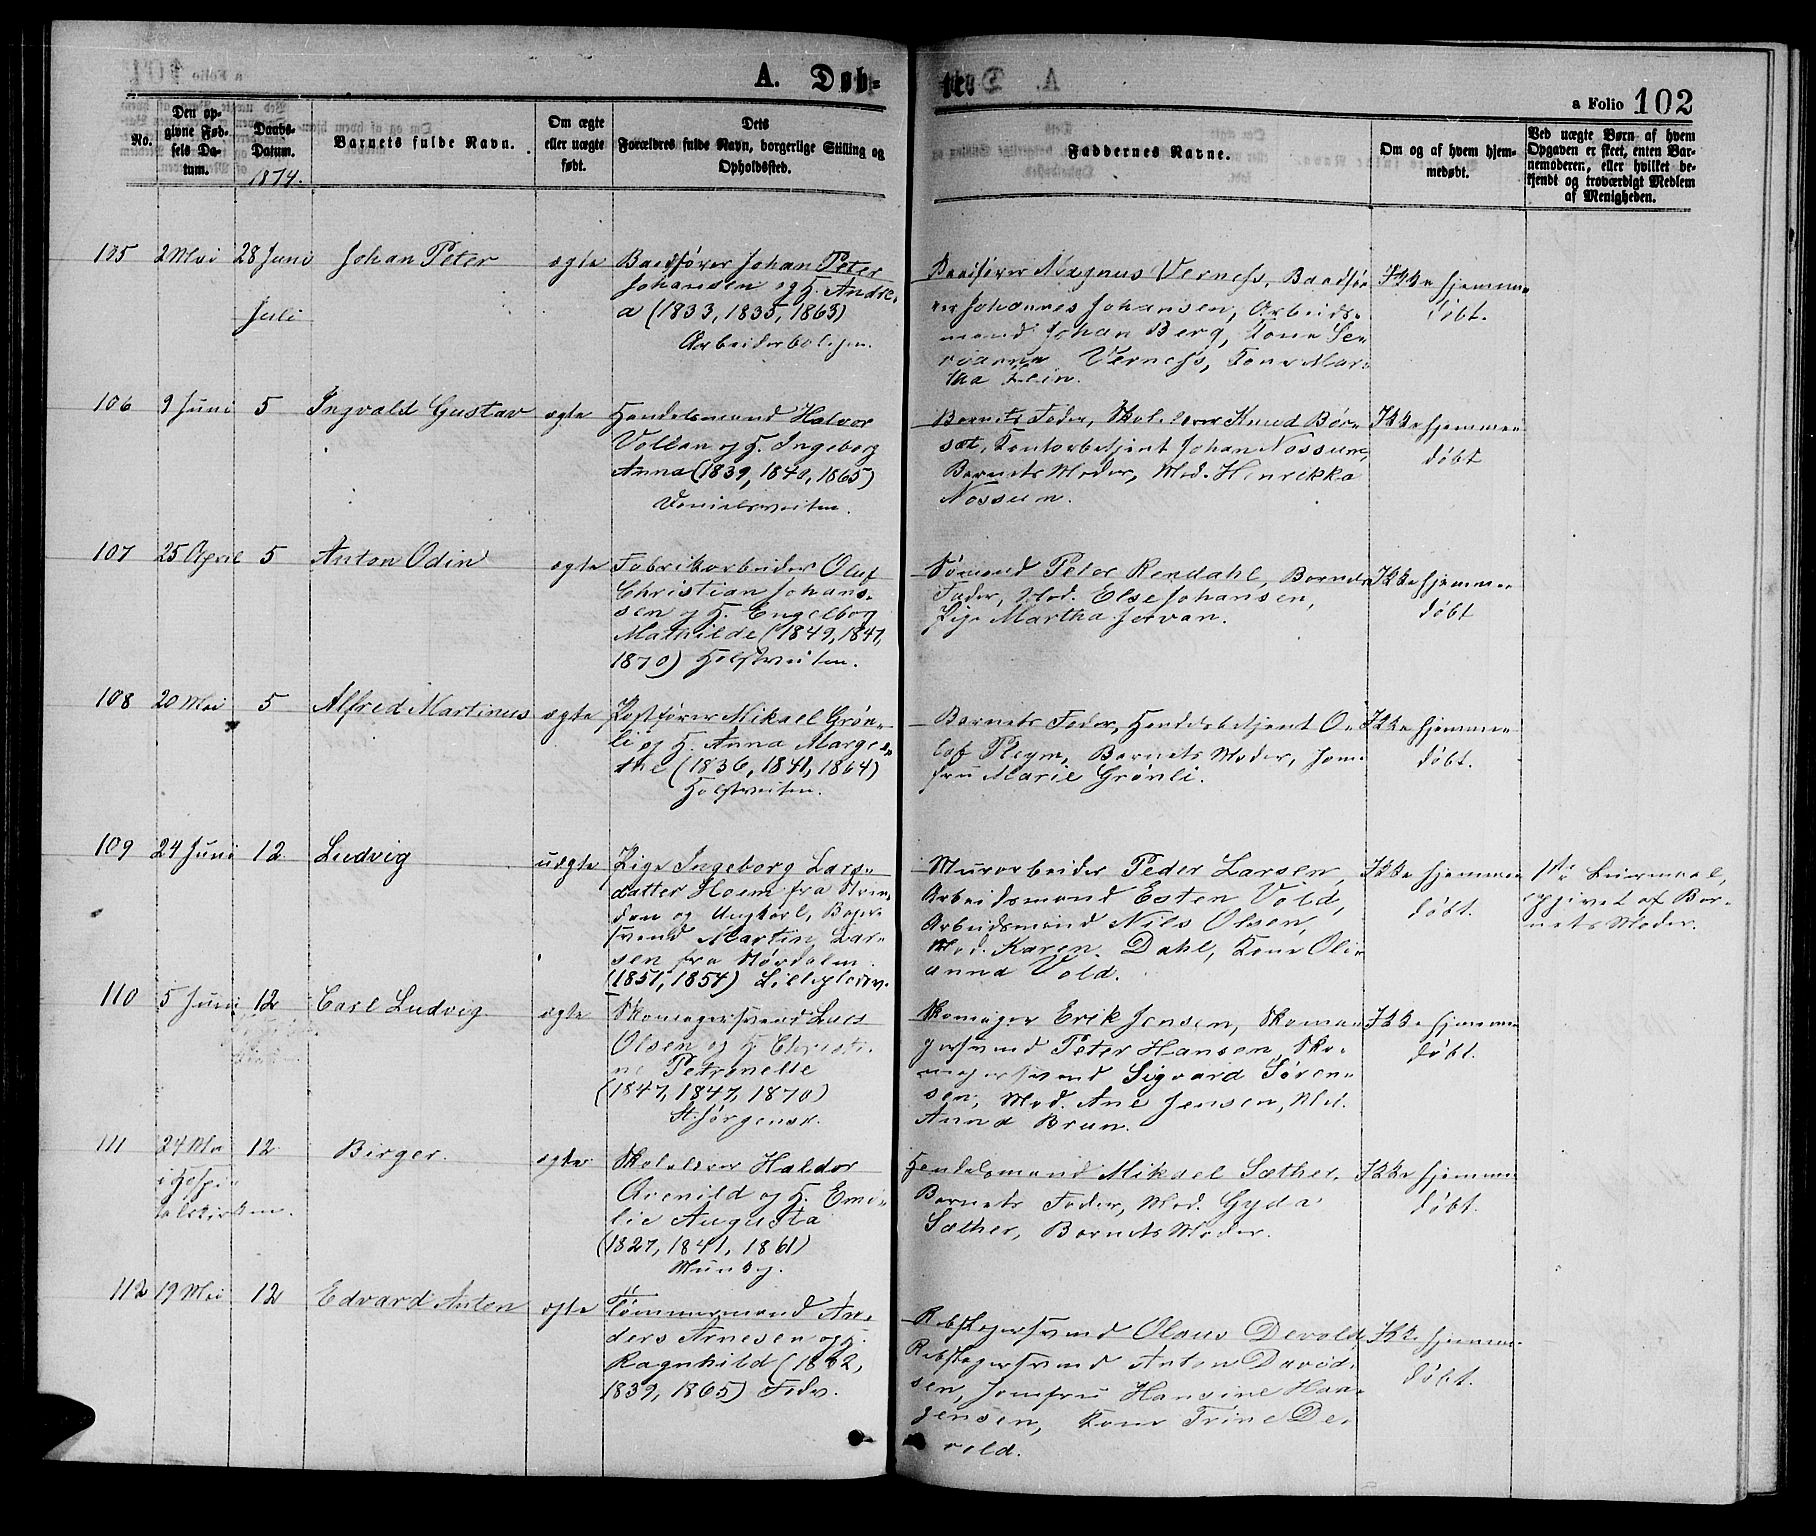 A. Døb-
te.
a Folio 102
No.
Den op-
givne Fød-
sels Da-
tum.
Daabs-
Datum.
1874.
Barnets fulde Navn.
Om ægte
eller uægte
født.
Dets
Forældres fulde Navn, borgerlige Stilling og
Opholdssted.
Faddernes Navne.
Om og af hvem hjem-
medøbt.
Ved uægte Børn af hvem
Opgaven er skeet, enten Bar-
nemoderen, eller hvilket be-
kjendt og troværdigt Medlem
af Menigheden.
105 2 Mai 28 Juni Johan Peter ægte
Baadfører Johan Peter
Johansen og H. Andre-
a (1833, 1835, 1863)
Arbeiderboligen.
Baadfører Magnus Verness, Baadfø-
rer Johannes Johansen, Arbeids-
mand Johan Berg, Kone
Verness, Kone Mar-
tha
Ikke hjemme-
døbt.
Juli
106 9 Juni 5 Ingvald Gustav ægte
Handelsmand Halvor
Vollan og H. Ingeborg
Anna (1839, 1840, 1865)
Danielsveiten.
Barnets Fader, Skolelærer Knud Bør-
sæt, Kontorbetjent Johan Nossum,
Barnets Moder, Mad. Henrikka
Nossum.
Ikke hjemme-
døbt
107 25 April 5 Anton Odin ægte
Fabrikarbeider Oluf
Christian Johans-
sen og H. Engelborg
Mathilde (1849, 1847,
1870) Holstveiten.
Sømand Peter Rendahl, Barnets
Fader, Mad. Else Johansen,
Pige Martha Jervan.
Ikke hjemme-
døbt
108 20 Mai 5 Alfred Martinus ægte
Postfører Mikael Grøn-
li og H. Anna Marge-
the (1836, 1841, 1864)
Holstveiten.
Barnets Fader, Handelsbetjent O-
laf Pleym, Barnets Moder, Jom-
fru Marie Grønli.
Ikke hjemme-
døbt.
109 24 Juni 12 Ludvig uægte
Pige Ingeborg Lars-
datter Hoem fra Strin-
den og Ungkarl, Bager-
svend Martin Lar-
sen fra Størdalen.
(1851, 1854)
Murarbeider Peder Larsen,
Arbeidsmand Esten Vold,
Arbeidsmand Nils Olsen,
Mad. Karen Dahl, Kone Oli-
anna Vold.
Ikke hjemme-
døbt.
1ste Leiermaal,
opgivet af Bar-
nets Moder.
110 5 Juni 12 Carl Ludvig ægte
Skomagersvend Lars
Olsen og H. Christi-
ne Petronelle
(1847, 1847, 1870)
St. Jørgensv.
Skomager Erik Jensen, Skoma-
gersvend Peter Hansen, Sko-
magersvend Sigvard Søren-
sen, Mad. Ane Jensen, Mad.
Anna Brun.
Ikke hjemme-
døbt.
111 24 Mai 12 Birger. ægte
i Hospi-
talskirken.
Skolelærer Haldor
Avenild og H. Emi-
lie Augusta
(1827, 1841, 1861)
Munkg.
Handelsmand Mikael Sæther,
Barnets Fader, Mad. Gyda
Sæther, Barnets Moder.
Ikke hjemme-
døbt.
112 19 Mai 12 Edvard Anton ægte
Tømmermand An-
ders Arnesen og H.
Ragnhild (1832,
1839, 1865)
Rebslagersvend Olaus Devold,
Rebslagersvend Anton David-
sen, Jomfru Hansine Han-
sensen, Kone Trine De-
vold.
Ikke hjemme-
døbt.